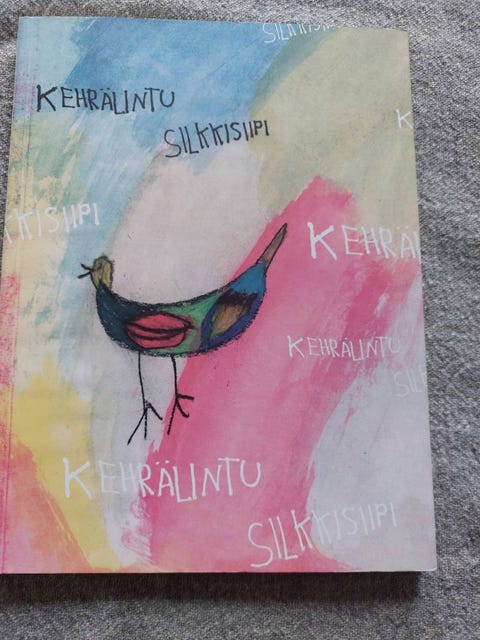 SILKKISI
KEHRÄLINTU
SILKKISIIPI
K
KKISIIPI
KEHRÄ
KEHRÄLINTU
SIL
KEHRÄLINTU
SILKKISIIPI